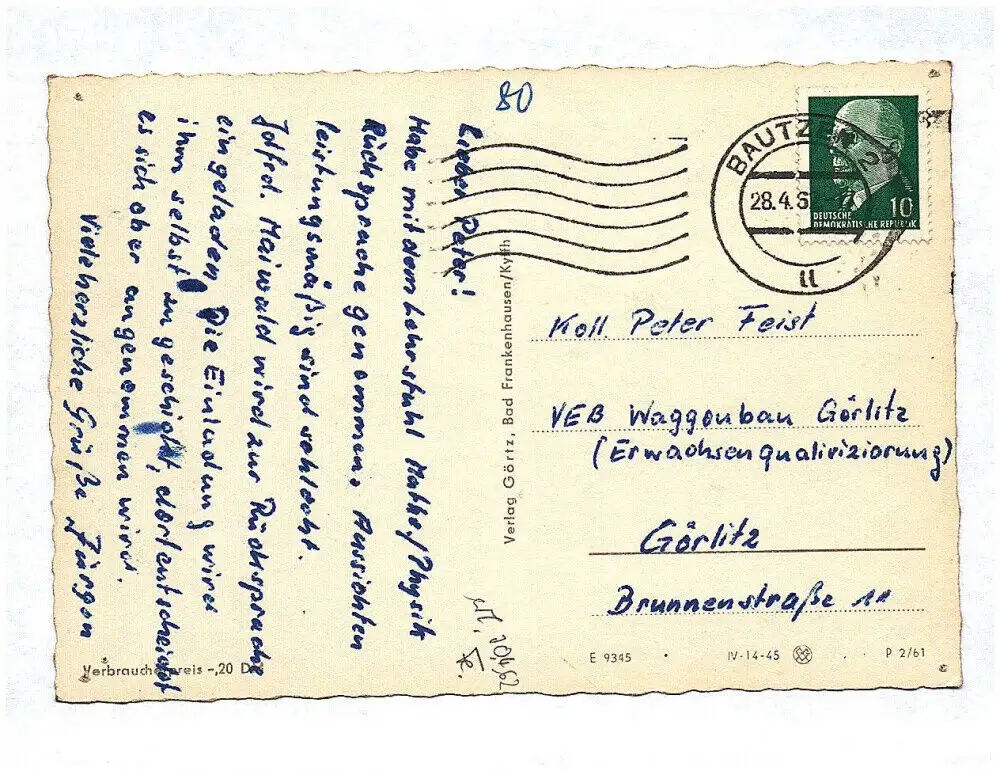 80
Lieber Peter!
Habe mit dem Lehrstuhl Mathe/Physik
Rücksprache genommen. Aussichten
leistungsmäßig sind schlecht.
Maiwald wird zur Rücksprache
eingeladen. Die Einladung wird
ihm selbst zugeschickt, dort entscheidet
es sich ob er angenommen wird.
Viele herzliche Grüße Jürgen
Verbraucherpreis -,20 D
Verlag Görtz, Bad Frankenhausen/Kyffh
BAUTZEN
28.4.6
11
10
DEUTSCHE
DEMOKRATISCHE REPUBLIK
Koll. Peter Feist
VEB Waggonbau Görlitz
(Erwachsenqualifizierung)
Görlitz
Brunnenstraße 11
E 9345 • IV-14-45 P 2/61